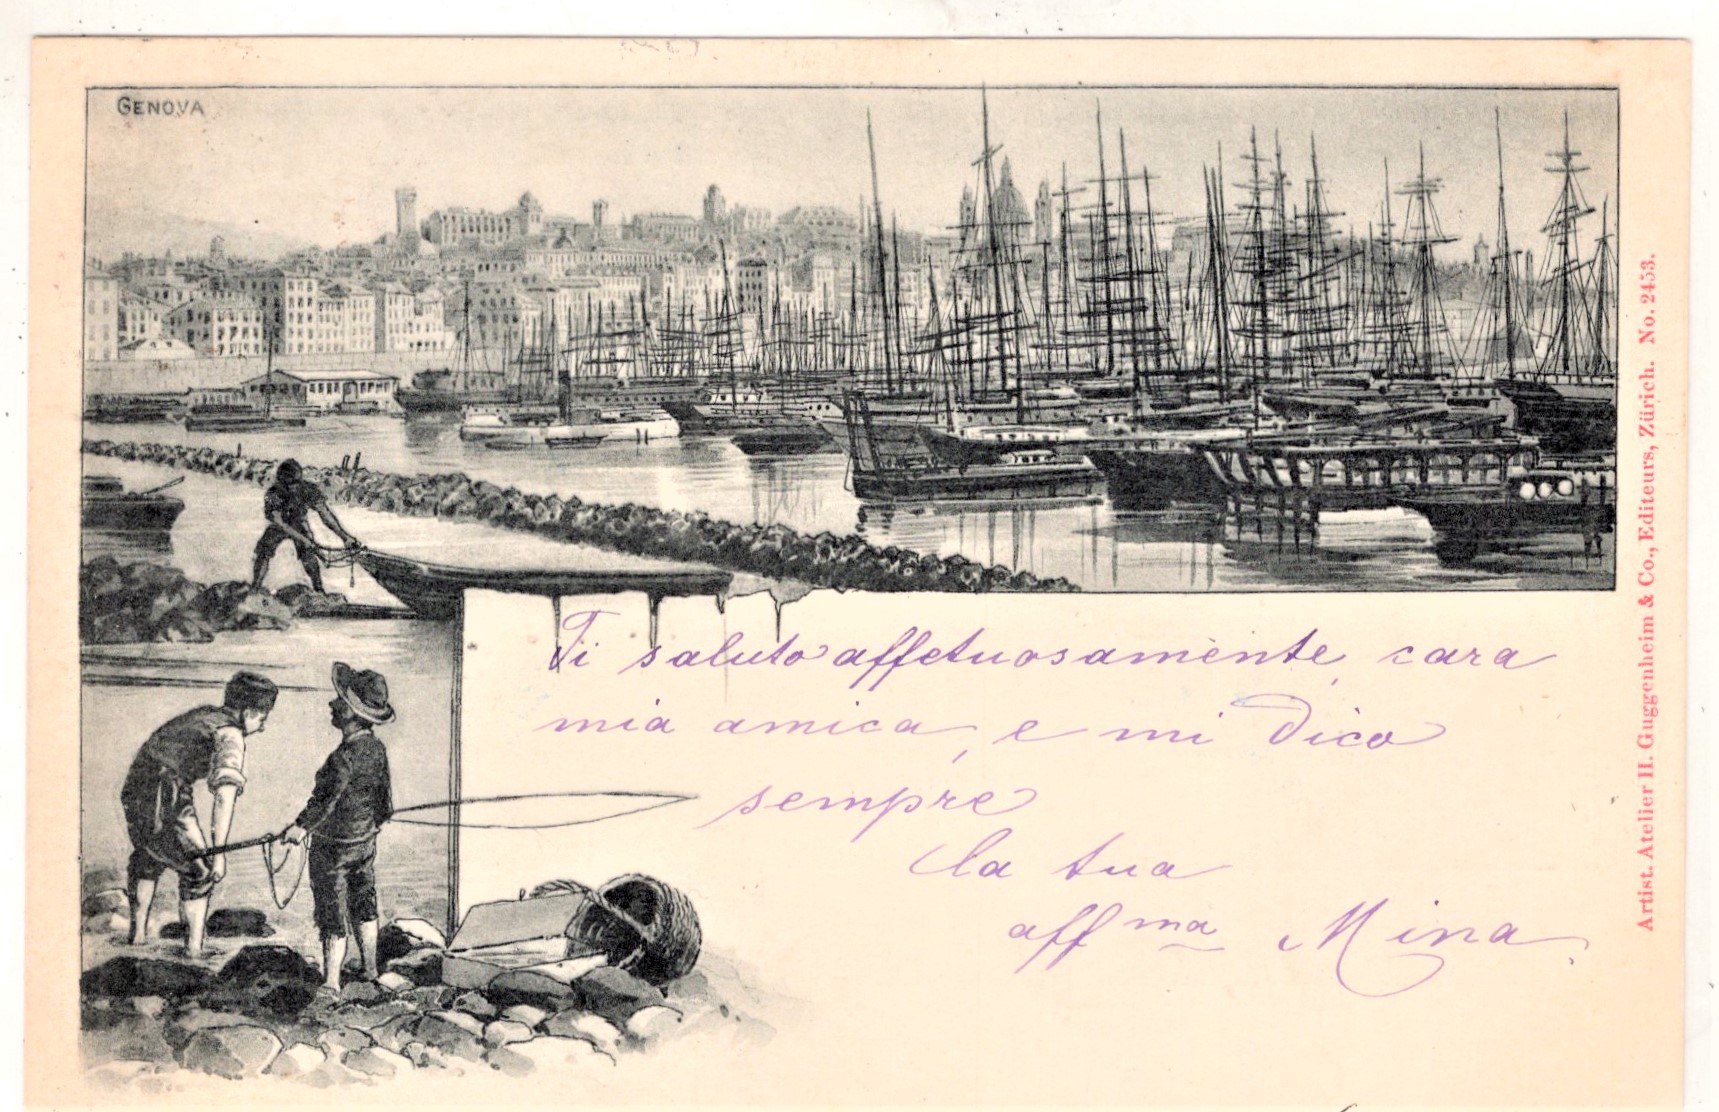 GENOVA
Ti saluto affetuosamente, cara
mia amica, e mi dico
sempre
la tua
aff ma Mina
Artist. Atelier H. Guggenheim & Co., Editeurs, Zürich. No. 2453.